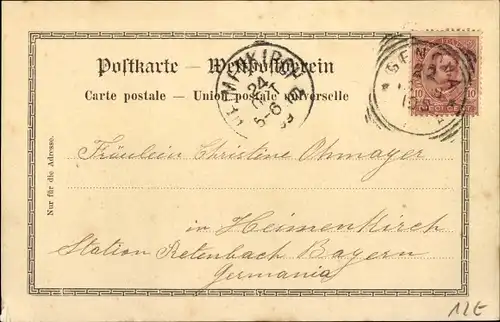 Postkarte – Weltpostverein
Carte postale – Union postale universelle
Nur für die Adresse.
HEIMENKIRCH
24
OKT
5-6
99
GENOVA
10 10
Fräulein Christine Ohmayer
in Heimenkirch
Station Retenbach Bayern
Germania
12E